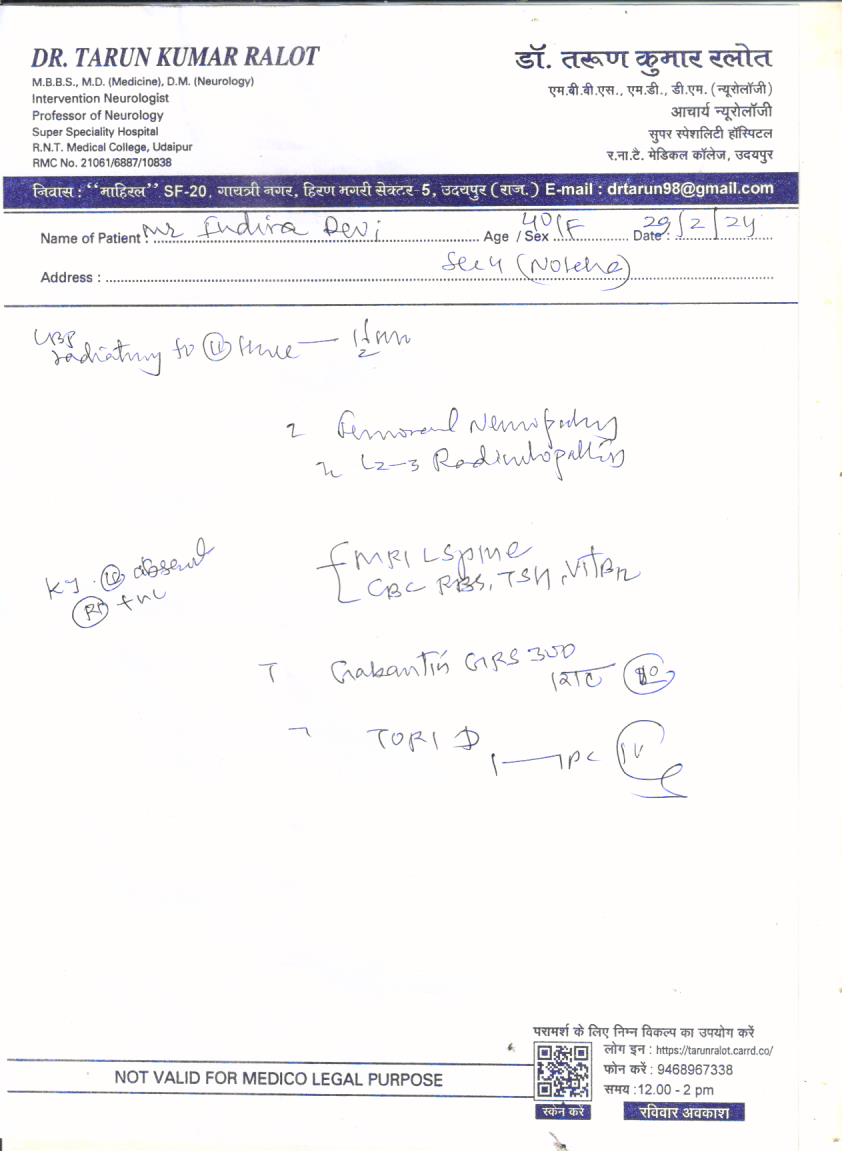 DR. TARUN KUMAR RALOT
M.B.B.S., M.D. (Medicine), D.M. (Neurology)
Intervention Neurologist
Professor of Neurology
Super Speciality Hospital
R.N.T. Medical College, Udaipur
RMC No. 21061/6887/10838
डॉ. तरूण कुमार रलोत
एम.बी.बी.एस., एम.डी., डी.एम. (न्यूरोलॉजी)
आचार्य न्यूरोलॉजी
सुपर स्पेशलिटी हॉस्पिटल
र.ना.टै. मेडिकल कॉलेज, उदयपुर
निवास : “माहिरल” SF-20, गायत्री नगर, हिरण मगरी सेक्टर-5, उदयपुर (राज.) E-mail : drtarun98@gmail.com
Name of Patient : Indira Devi Age / Sex 40/F Date : 29/2/24
Address : Sec 4
LBP
radiating to
Femoral Neuropathy
L2-3 Radiculopathy
KJ. absent
MRI L Spine
CBC RBS, TSH, Vit B12
T Gabantin 300
TORI D
NOT VALID FOR MEDICO LEGAL PURPOSE
परामर्श के लिए निम्न विकल्प का उपयोग करें
लोग इन : https://tarunralot.carrd.co/
फोन करें : 9468967338
समय :12.00 - 2 pm
स्केन करें
रविवार अवकाश